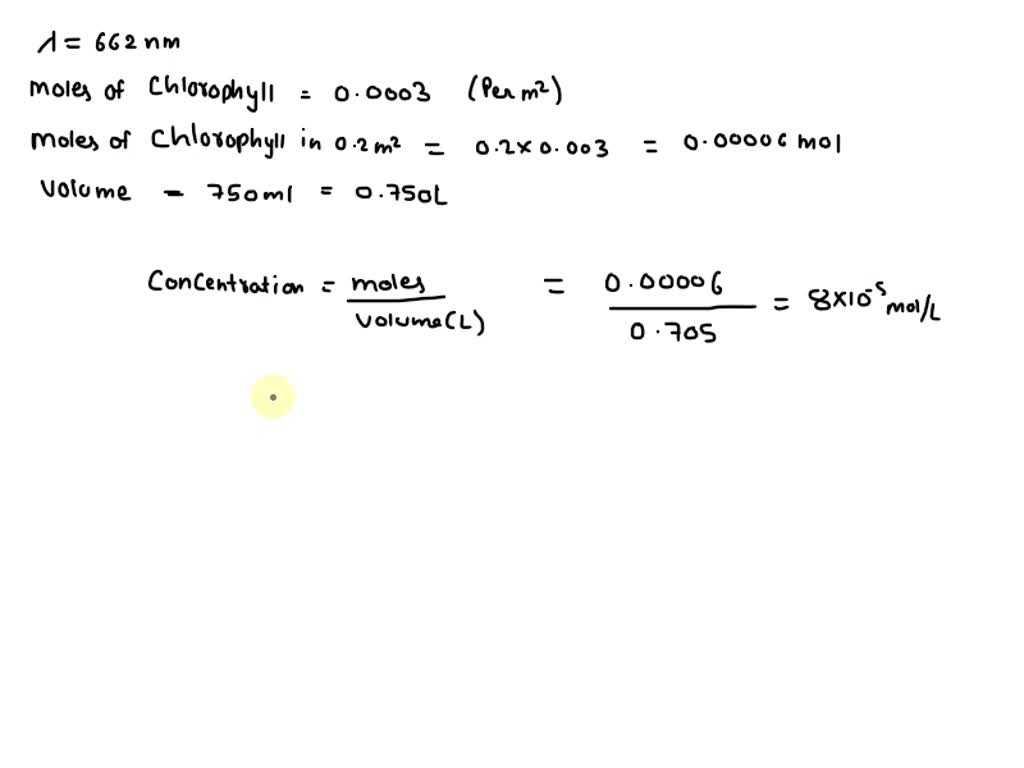 λ = 662 nm
moles of Chlorophyll = 0.0003 (Per m²)
moles of Chlorophyll in 0.2 m² = 0.2 × 0.003 = 0.00006 mol
Volume - 750ml = 0.750L
Concentration = moles / Volume(L) = 0.00006 / 0.705 = 8×10⁻⁵ mol/L